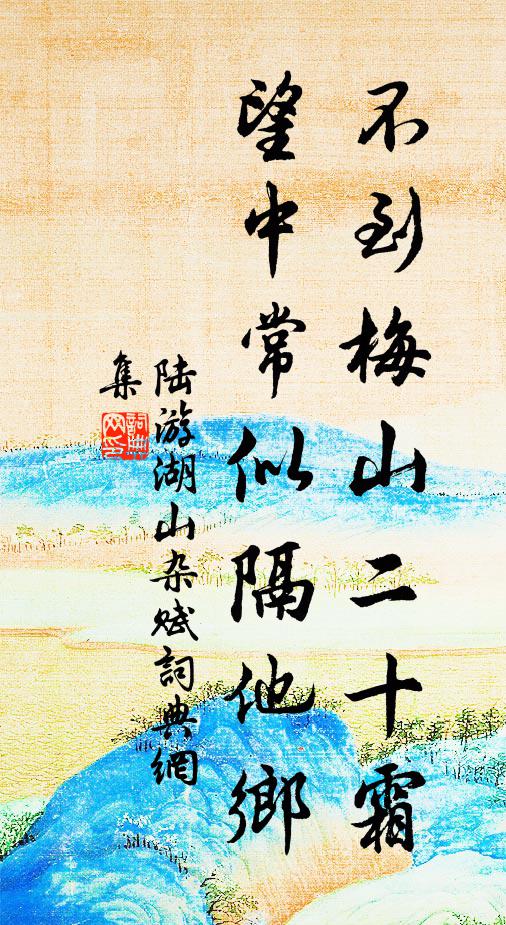 不到梅山二十霜
望中常似隔他鄉
陆游湖山杂赋詞典網
集
詞典網印